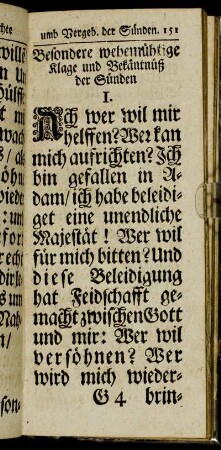 umb Vergeb. der Sünden. 151
Besondere wehemühtige
Klage und Bekäntnüß
der Sünden
I.
Ach wer wil mir
helffen? Wer kan
mich aufrichten? Ich
bin gefallen in A-
dam / ich habe beleidi-
get eine unendliche
Majestät! Wer wil
für mich bitten? Und
diese Beleidigung
hat Feidschafft ge-
macht zwischen Gott
und mir: Wer wil
versöhnen? Wer
wird mich wieder-
G 4 brin-